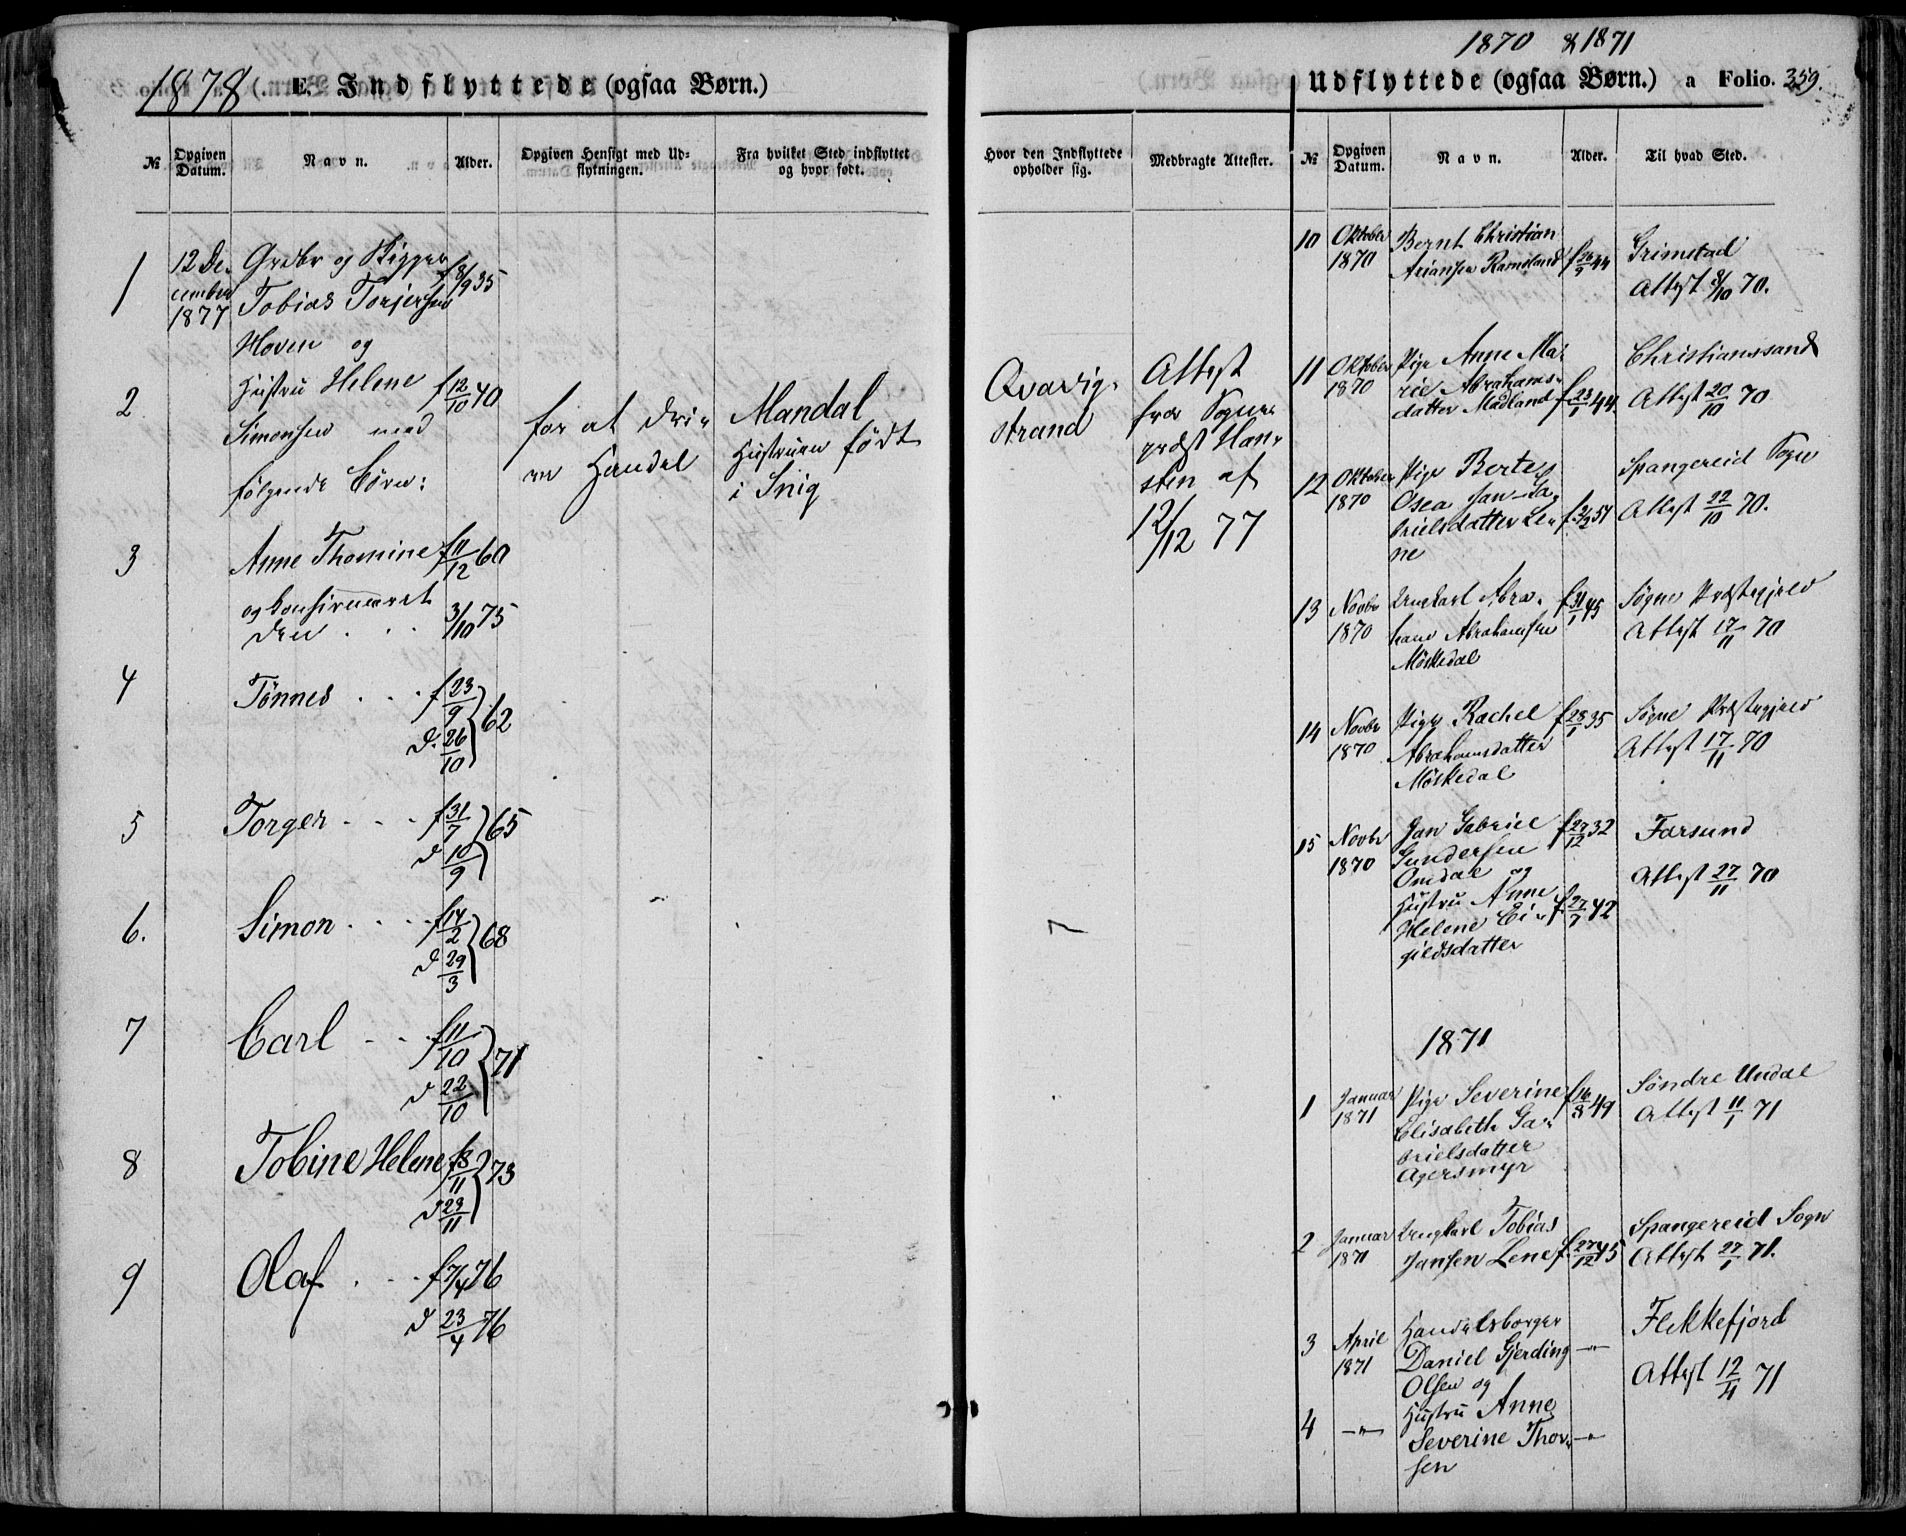 1878 E. Indflyttede (ogsaa Børn.)
№
Opgiven Datum.
Navn.
Alder.
Opgiven Hensigt med Ud-
flytningen.
Fra hvilket Sted indflyttet
og hvor født.
1
12 De-
cember
1877
og Skipper
Tobias Torjersen
Hoven og
f 8/9 35
2
Hustru Helene f 12/10 40
Simonsen med
følgende Børn:
for at dri-
ve Handel
Mandal
Hustruen født
i Snig
3
Anne Thomine f 11/12 60
og konfirmeret
den . . . 3/10 75
4
Tønnes . . . f 23/9
d. 26/10 } 62
5
Torger . . . f 31/7
d 10/9 } 65
6.
Simon . . . f 14/2
d 29/3 } 68
7
Carl . . f 11/10
d 22/10 } 71
8
Tobine Helene f 3/11
d 29/11 } 73
9
Olaf . . . f 7/4 76
d 23/4 76
Hvor den Indflyttede
opholder sig.
Medbragte Attester.
Qvavig-
strand
Attest
fra Sogne-
præst Han-
sten af
12/12 77
1870 & 1871
Udflyttede (ogsaa Børn.) a Folio. 359.
№
Opgiven Datum.
Navn.
Alder.
Til hvad Sted.
10 Oktober 1870
Bernt Christian
Arianson Ramsland f 26/9 44
Grimstad
Attest 8/10 70.
11 Oktober 1870
Pige Anne Ma-
rie Abrahams-
datter Madland f 23/1 44.
Christianssand
Attest 20/10 70
12 Oktober 1870
Pige Berte
Osea Jan-Ga-
brielsdatter Le-
ne
f 2/2 51
Spangereid Sogn
Attest 22/10 70.
13 Novbr 1870
Ungkarl Abra-
ham Abrahamsen
Møskedal
f 31/1 45
Søgne Præstegjeld
Attest 17/11 70
14 Novbr 1870
Pige Rachel
Abrahamsdatter
Møskedal
f 28/1 35
Søgne Præstegjeld
Attest 17/11 70
15 Novbr 1870
Jan Gabriel
Gundersen
Omdal og
f 27/12 32
Hustru Anne
Helene Ei-
gieldsdatter
f 27/7 42
Farsund
Attest 27/11 70
1871
1 Januar 1871
Pige Severine
Elisabeth Ga-
brielsdatter
Agersmyr
f 16/3 49
Søndre Undal
Attest 11/1 71
2 Januar 1871
Ungkarl Tobias
Jansen Lene f 27/12 45
Spangereid Sogn
Attest 27/1 71.
3 April 1871
Handelsborger
Daniel Gjerding
Olsen og
—"—
Flekkefjord
Attest 12/4 71
4 —"—
Hustru Anne
Severine Thor-
sen
—"—